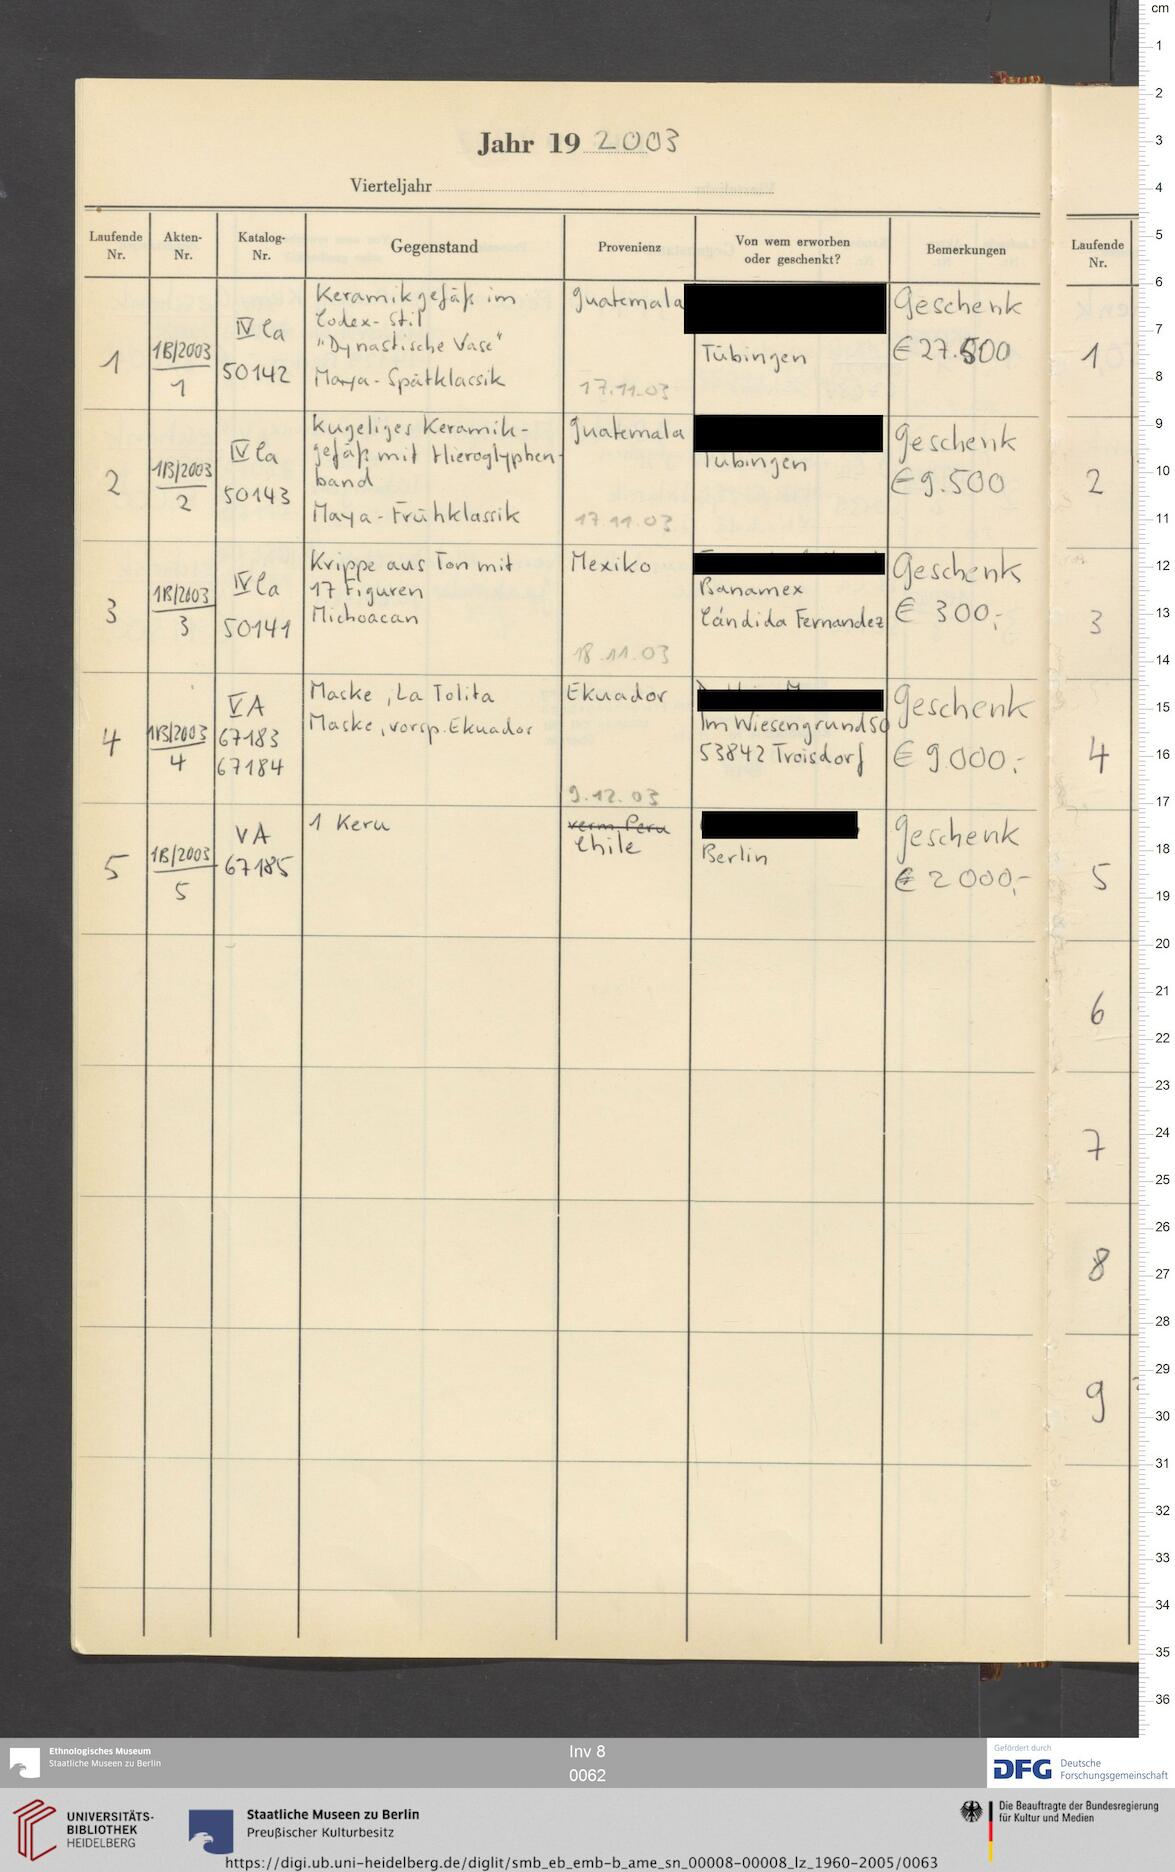 Jahr 19 2003
Vierteljahr
Laufende Nr.
Akten-Nr.
Katalog-Nr.
Gegenstand
Provenienz
Von wem erworben oder geschenkt?
Bemerkungen
Laufende Nr.
1
1B/2003
1
IV Ca
50142
Keramikgefäß im
Codex-Stil
"Dynastische Vase"
Maya-Spätklassik
Guatemala
17.11.03
Tübingen
Geschenk
€ 27.500
1
2
1B/2003
2
IV Ca
50143
Kugeliges Keramik-
gefäß mit Hieroglyphen-
band
Maya-Frühklassik
Guatemala
17.11.03
Tübingen
Geschenk
€ 9.500
2
3
1B/2003
3
IV Ca
50141
Krippe aus Ton mit
17 Figuren
Michoacan
Mexiko
18.11.03
Banamex
Cándida Fernandez
Geschenk
€ 300,-
3
4
1B/2003
4
V A
67183
67184
Maske, La Tolita
Maske, vorsp. Ekuador
Ekuador
9.12.03
Im Wiesengrund 50
53842 Troisdorf
Geschenk
€ 9.000,-
4
5
1B/2003
5
V A
67185
1 Keru
verm. Peru
Chile
Berlin
Geschenk
€ 2000,-
5
6
7
8
9
cm
1
2
3
4
5
6
7
8
9
10
11
12
13
14
15
16
17
18
19
20
21
22
23
24
25
26
27
28
29
30
31
32
33
34
35
36
Ethnologisches Museum
Staatliche Museen zu Berlin
Inv 8
0062
Gefördert durch
DFG Deutsche
Forschungsgemeinschaft
UNIVERSITÄTS-
BIBLIOTHEK
HEIDELBERG
Staatliche Museen zu Berlin
Preußischer Kulturbesitz
Die Beauftragte der Bundesregierung
für Kultur und Medien
https://digi.ub.uni-heidelberg.de/diglit/smb_eb_emb-b_ame_sn_00008-00008_lz_1960-2005/0063